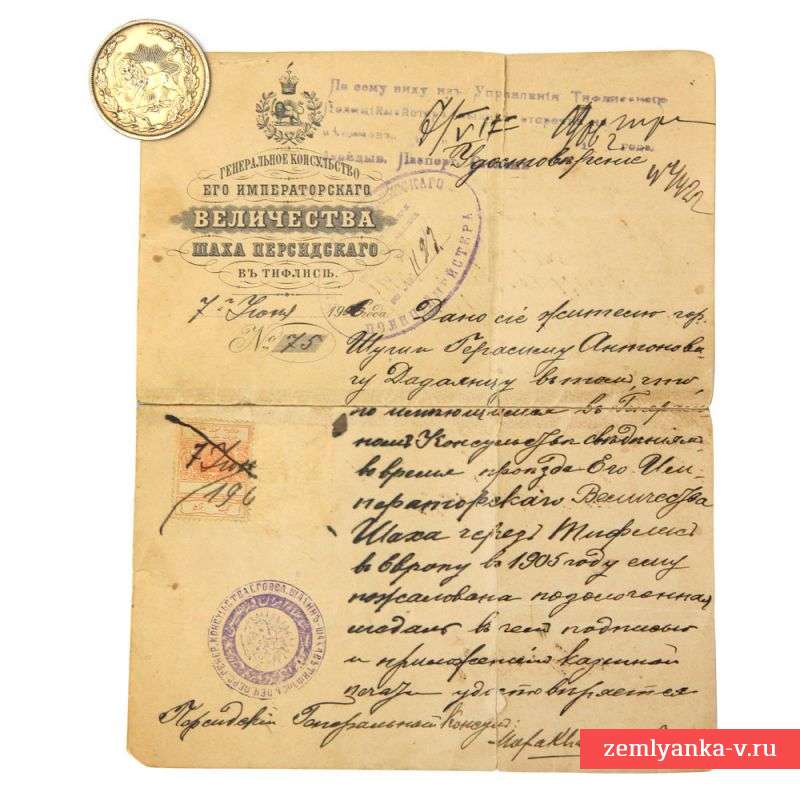 По сему виду изъ Управленія Тифлисскаго
Удостовѣреніе
ГЕНЕРАЛЬНОЕ КОНСУЛЬСТВО
ЕГО ИМПЕРАТОРСКАГО
ВЕЛИЧЕСТВА
ШАХА ПЕРСИДСКАГО
ВЪ ТИФЛИСѢ.
7го Іюня 1906 года
№ 75
Дано сіе жителю гор.
Шуши Герасиму Антонови-
чу Дадаянцу въ томъ, что
по имѣющимся въ Генераль-
номъ Консульствѣ свѣдѣніямъ
во время проѣзда Его Им-
ператорскаго Величества
Шаха черезъ Тифлисъ
въ Европу въ 1905 году ему
пожалована позолоченная
медаль въ чемъ подписью
и приложеніемъ казенной
печати удостовѣряется
7 Іюн
190
Персидскій Генеральный Консулъ:
zemlyanka-v.ru